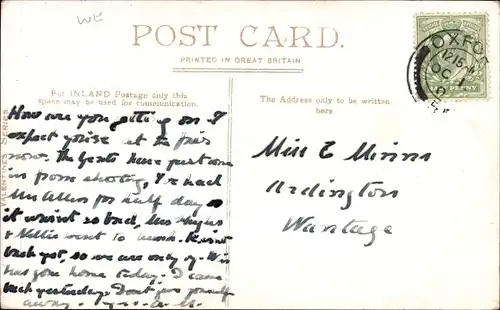 WE
POST CARD.
PRINTED IN GREAT BRITAIN
For INLAND Postage only this
space may be used for communication.
The Address only to be written
here
VALENTINES SERIES
OXFO
OC
PENNY
How are you getting on I
expect you're at the
now. The Gents have just come
in from shooting, I've had
Mrs Allen for half day so
it wasn't so bad, Mrs
& Nellie went to
back yet, so we are only
has gone home today. I came
back yesterday. Don't give yourself
away.
Miss E Minns
Ardington
Wantage